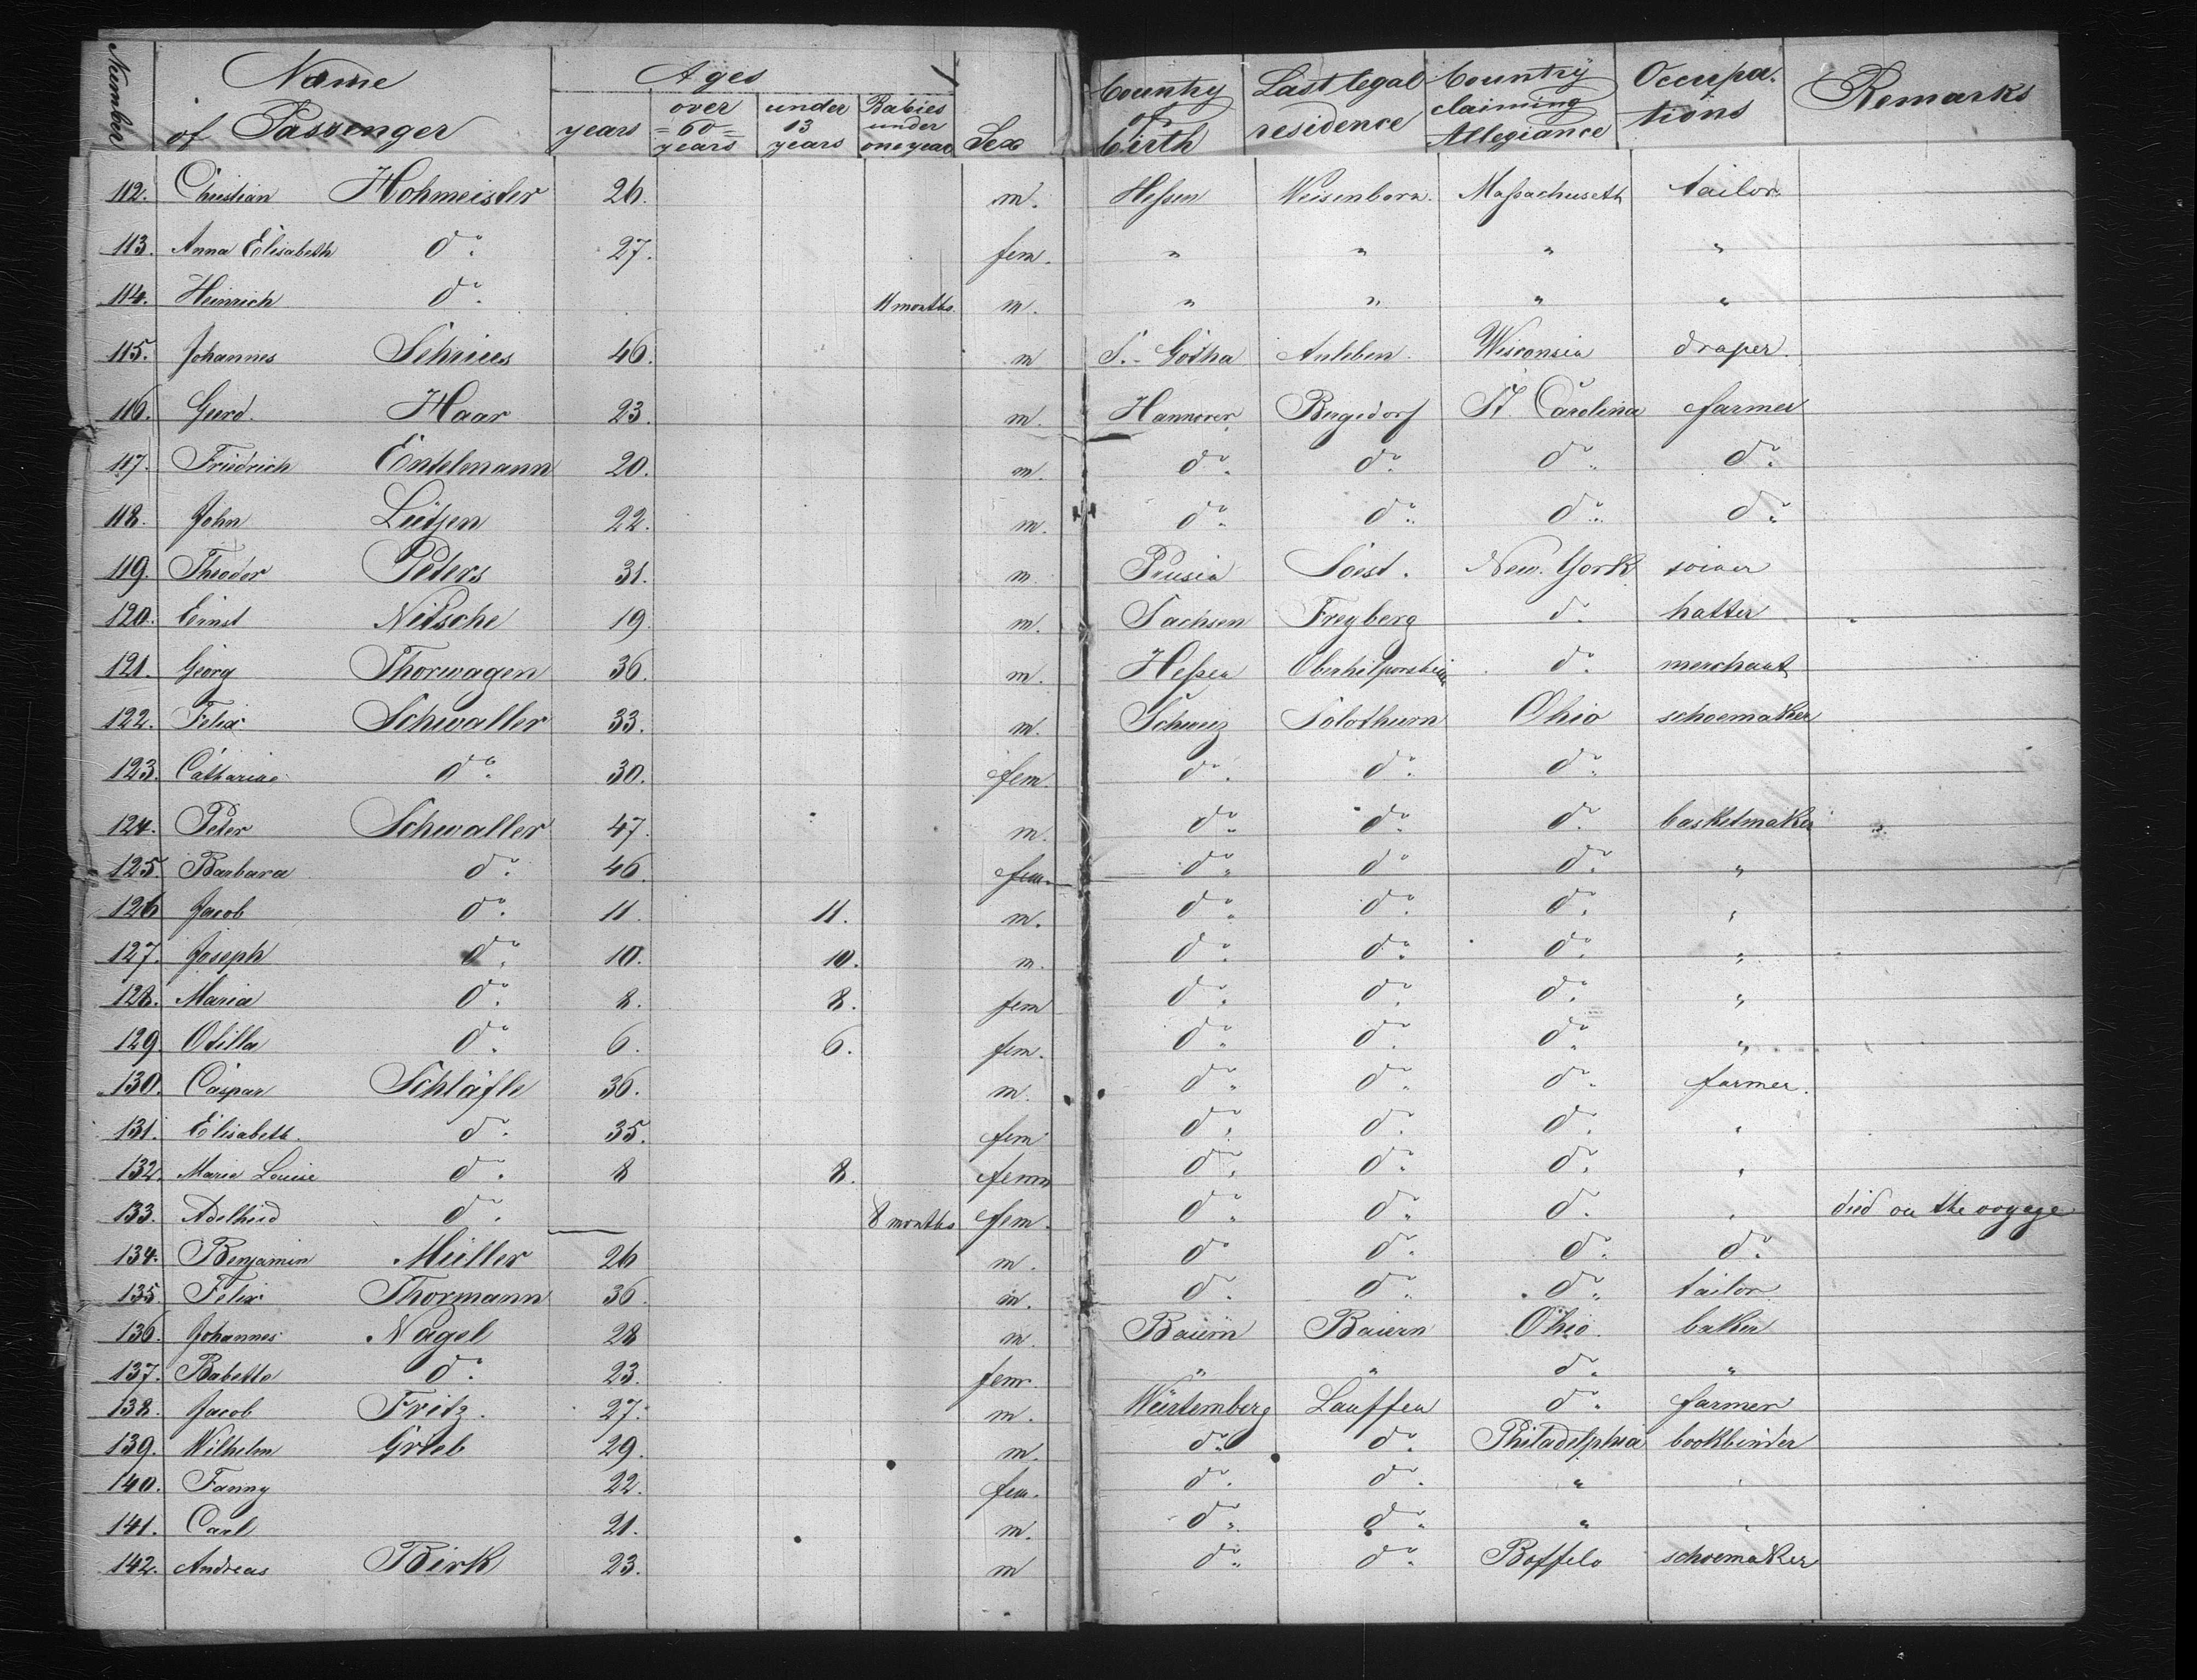 Number Name of Passenger Ages years over =60= years under 13 years Babies under one year Sex Country of birth Last legal residence Country claiming Allegiance Occupations Remarks
112. Christian Hohmeister 26. m. Heßen Weisenborn. Maßachuseth tailor.
113. Anna Elisabeth do. 27. fem. " " " "
114. Heinrich do. 11 months. m. " " " "
115. Johannes 46. m S.-Gotha Wisconsin draper.
116. Gerd. Haar 23. m. Hannover Bergedorf St Carolina farmer
117. Friedrich Entelmann 20. m. do. do. do. do.
118. John Lütjen 22. m. do. do. do. do.
119. Theodor Peters 31. m Prusia Soest. New. York
120. Ernst Nitsche 19. m. Sachsen Freyberg do. hatter
121. Georg Thorwagen 36. m. Heßen do. merchant
122. Felix Schwaller 33. m. Schweiz Solothurn Ohio schoemaker
123. Catharine do. 30. fem. do. do. do.
124. Peter Schwaller 47. m. do. do. do. basketmaker
125. Barbara do. 46. fem. do. do do. "
126 Jacob do. 11. 11. m. do. do. do. "
127. Joseph do. 10. 10. m. do. do. do. "
128. Maria do. 8. 8. fem do. do. do. "
129. Otilla do. 6. 6. fem. do. do. do. "
130. Caspar Schläfle 36. m. do. do. do. farmer.
131. Elisabeth. do. 35. fem do. do. do. "
132. Marie Louise do. 8 8. fem do. do. do. "
133. Adelheid do. 8 months fem. do. do. do. " died on the voyage
134. Benjamin Müller 26 m. do do. do. do.
135. Felix Thormann 36. m. do. do. do. tailor
136. Johannes Nagel 28 m. Baiern Baiern Ohio. baker
137. Babette do. 23. fem. " " do. "
138. Jacob Fritz. 27. m. Würtemberg Lauffen do. farmer
139. Wilhelm Grieb 29. m. do. do. Philadelphia bookbinder
140. Fanny 22. fem. do. do. "
141. Carl 21. m. do. do. "
142. Andreas Birk 23. m do. do. Boffelo schoemaker